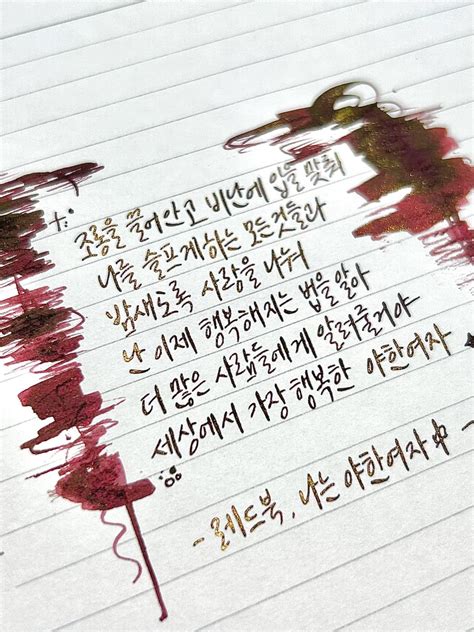 조롱을 끌어안고 비난에 입을 맞춰
나를 슬프게 하는 모든 것들과
밤새도록 사랑을 나눠
난 이제 행복해지는 법을 알아
더 많은 사람들에게 알려줄거야
세상에서 가장 행복한 야한여자
- 레드북, 나는 야한여자 -